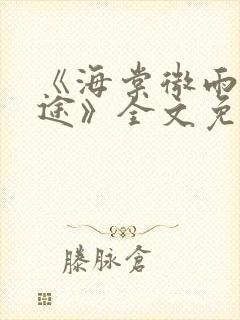 《海棠微雨
途》全文免
滕脉倉